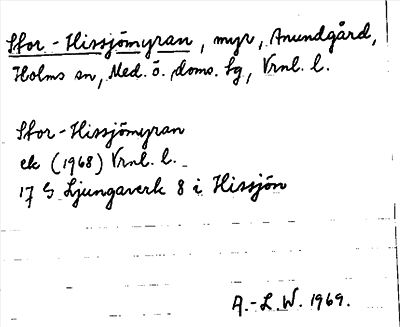 Stor-Hissjömyran, myr, Anundgård,
Holms sn, Med. ö. doms. sg, Vrnl. l.
Stor-Hissjömyran
ek (1968) Vrnl. l.
17 G Ljungaverk 8 i Hissjön
A.-L. W. 1969.